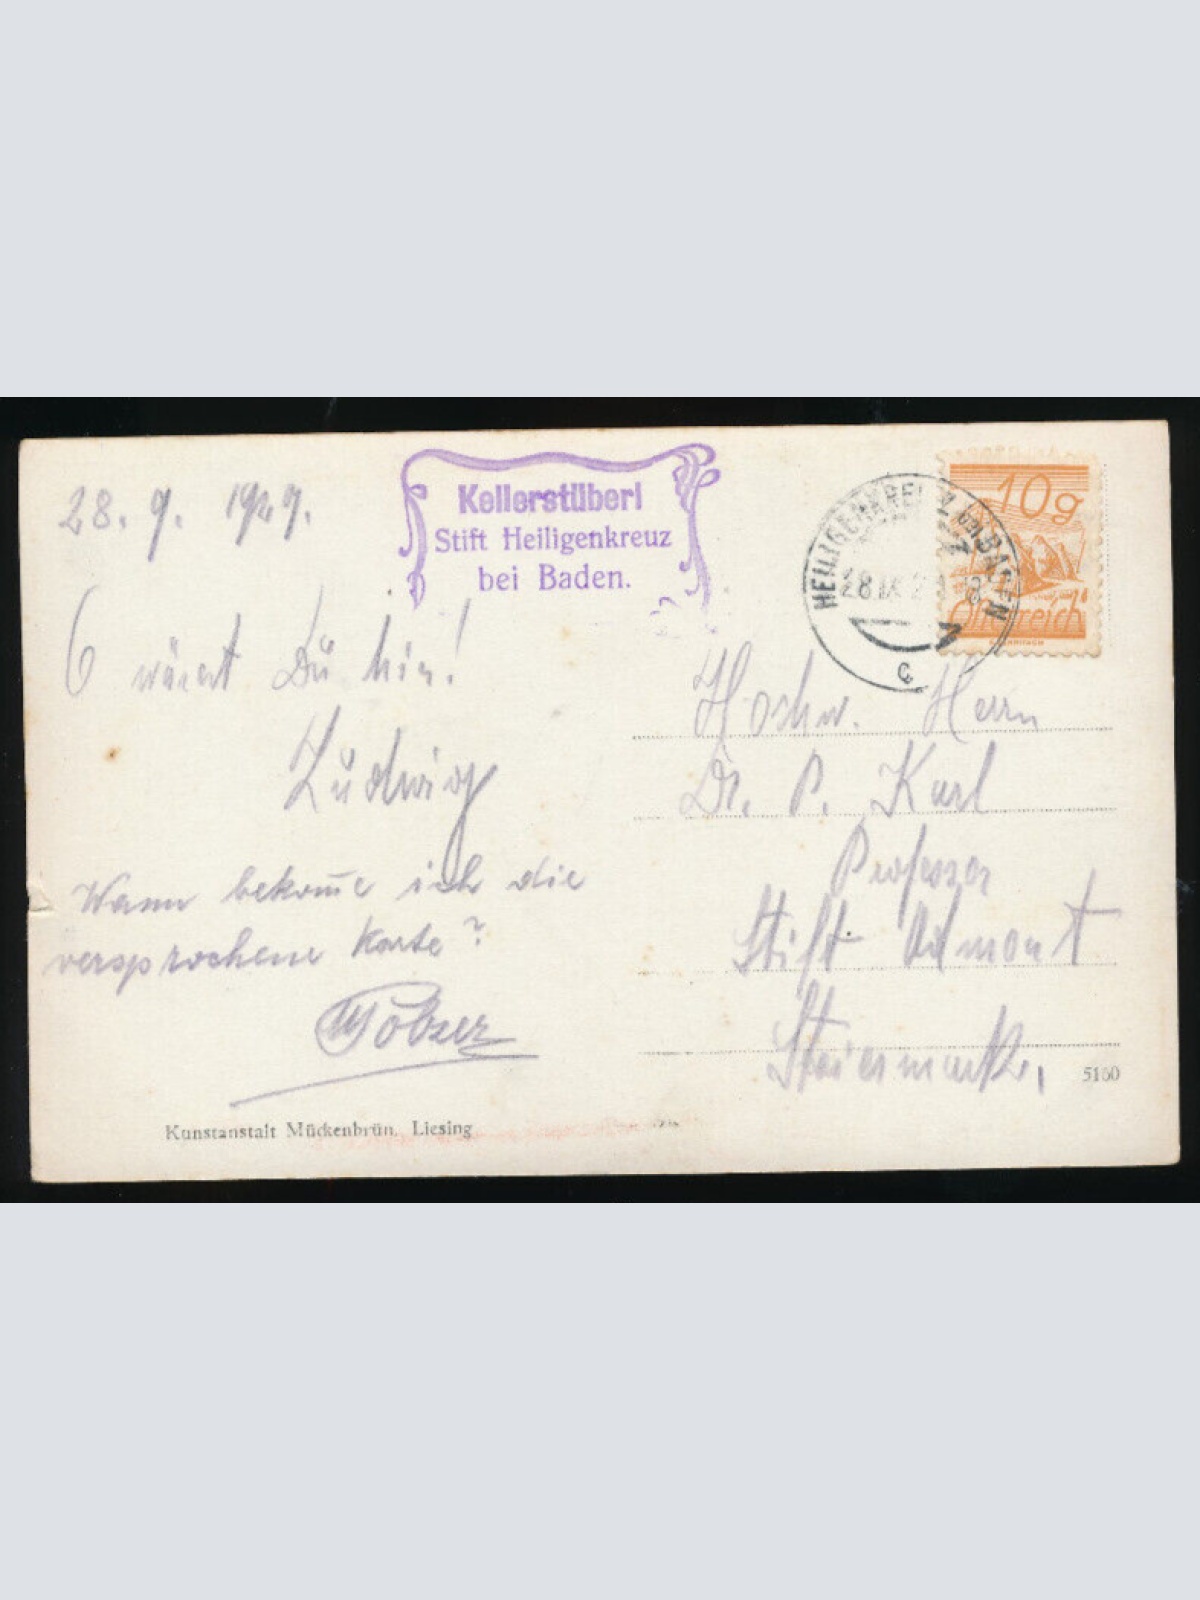 28. 9. 1929.
Kellerstüberl
Stift Heiligenkreuz
bei Baden.
HEILIGENKREUZ bei BADEN
28.IX.2
c
10g
Österreich
O wärest Du hier!
Ludwig
Wann bekom̄e ich die
versprochene Karte?
Hochw. Herrn
Dr. P. Karl
Professor
Stift Admont
Steiermark,
5160
Kunstanstalt Mückenbrün, Liesing